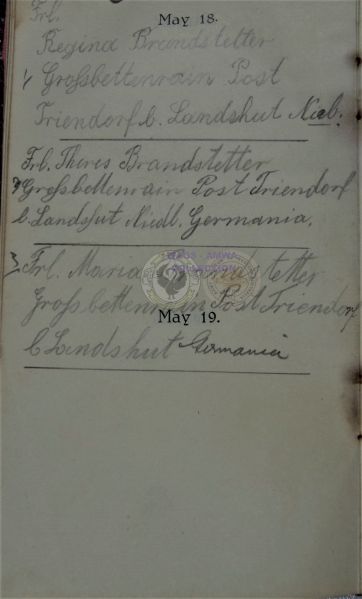 May 18.
Frl.
Regina Brandstetter
Grossbettenrain Post
Triendorf b. Landshut Ndb.
Frl. Theres Brandstetter
Grossbettenrain Post Triendorf
b. Landshut Niedb. Germania.
3 Frl. Maria Brandstetter
Grossbettenrain Post Triendorf
May 19.
b Landshut Germania